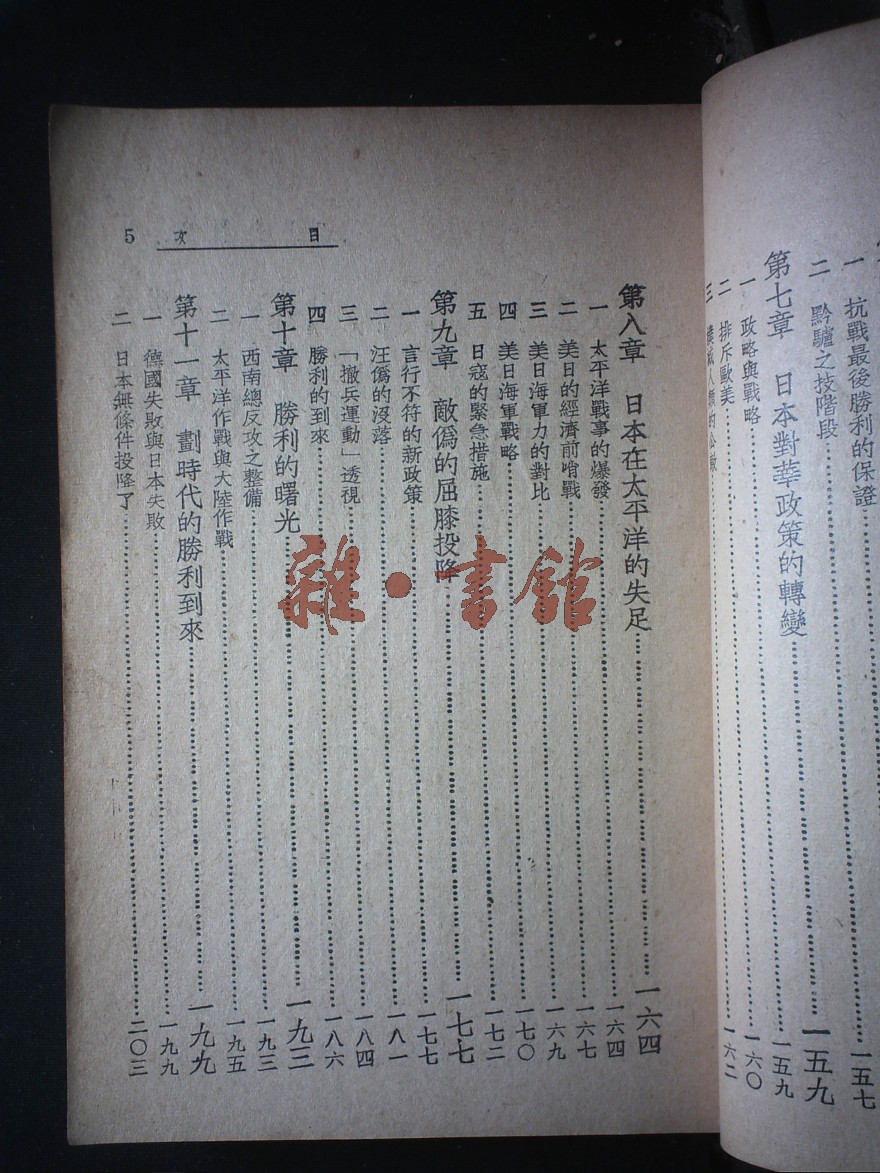 一 抗戰最後勝利的保證 一五七
二 黔驢之技階段
第七章 日本對華政策的轉變 一五九
一 政略與戰略 一五九
二 排斥歐美 一六〇
三 人類的公敵 一六二
目次 5
第八章 日本在太平洋的失足 一六四
一 太平洋戰事的爆發 一六四
二 美日的經濟前哨戰 一六七
三 美日海軍力的對比 一六九
四 美日海軍戰略 一七〇
五 日寇的緊急措施 一七二
第九章 敵僞的屈膝投降 一七七
一 言行不符的新政策 一七七
二 汪僞的沒落 一八一
三 「撤兵運動」透視 一八四
四 勝利的到來 一八六
第十章 勝利的曙光 一九三
一 西南總反攻之整備 一九三
二 太平洋作戰與大陸作戰 一九五
第十一章 劃時代的勝利到來 一九九
一 德國失敗與日本失敗 一九九
二 日本無條件投降了 二〇三
雜·書館